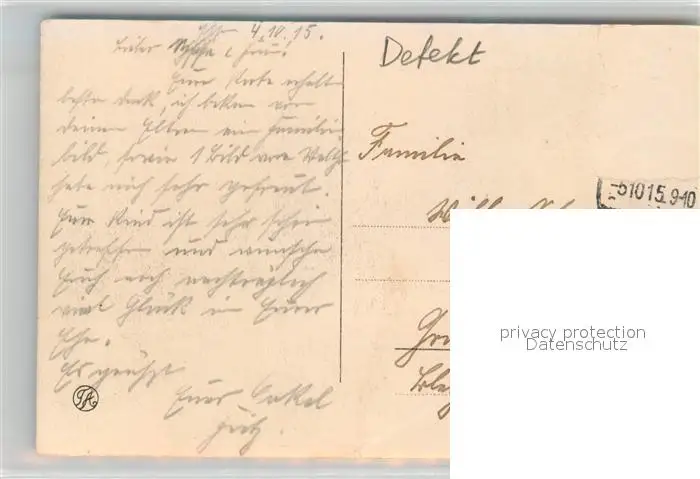 4.10.15.
Lieber & Frau!
Eure Karte erhalten
besten Dank, ich bekam von
deinen Eltern ein Familien
bild, sowie 1 Bild von
habe mich sehr gefreut.
Euer Kind ist sehr schön
getroffen und wünsche
Euch noch nachträglich
viel Glück in Eurer
Ehe.
Es grüßt
Euer Onkel
Fritz.
Defekt
Familie
-5.10.15.9-10
privacy protection
Datenschutz